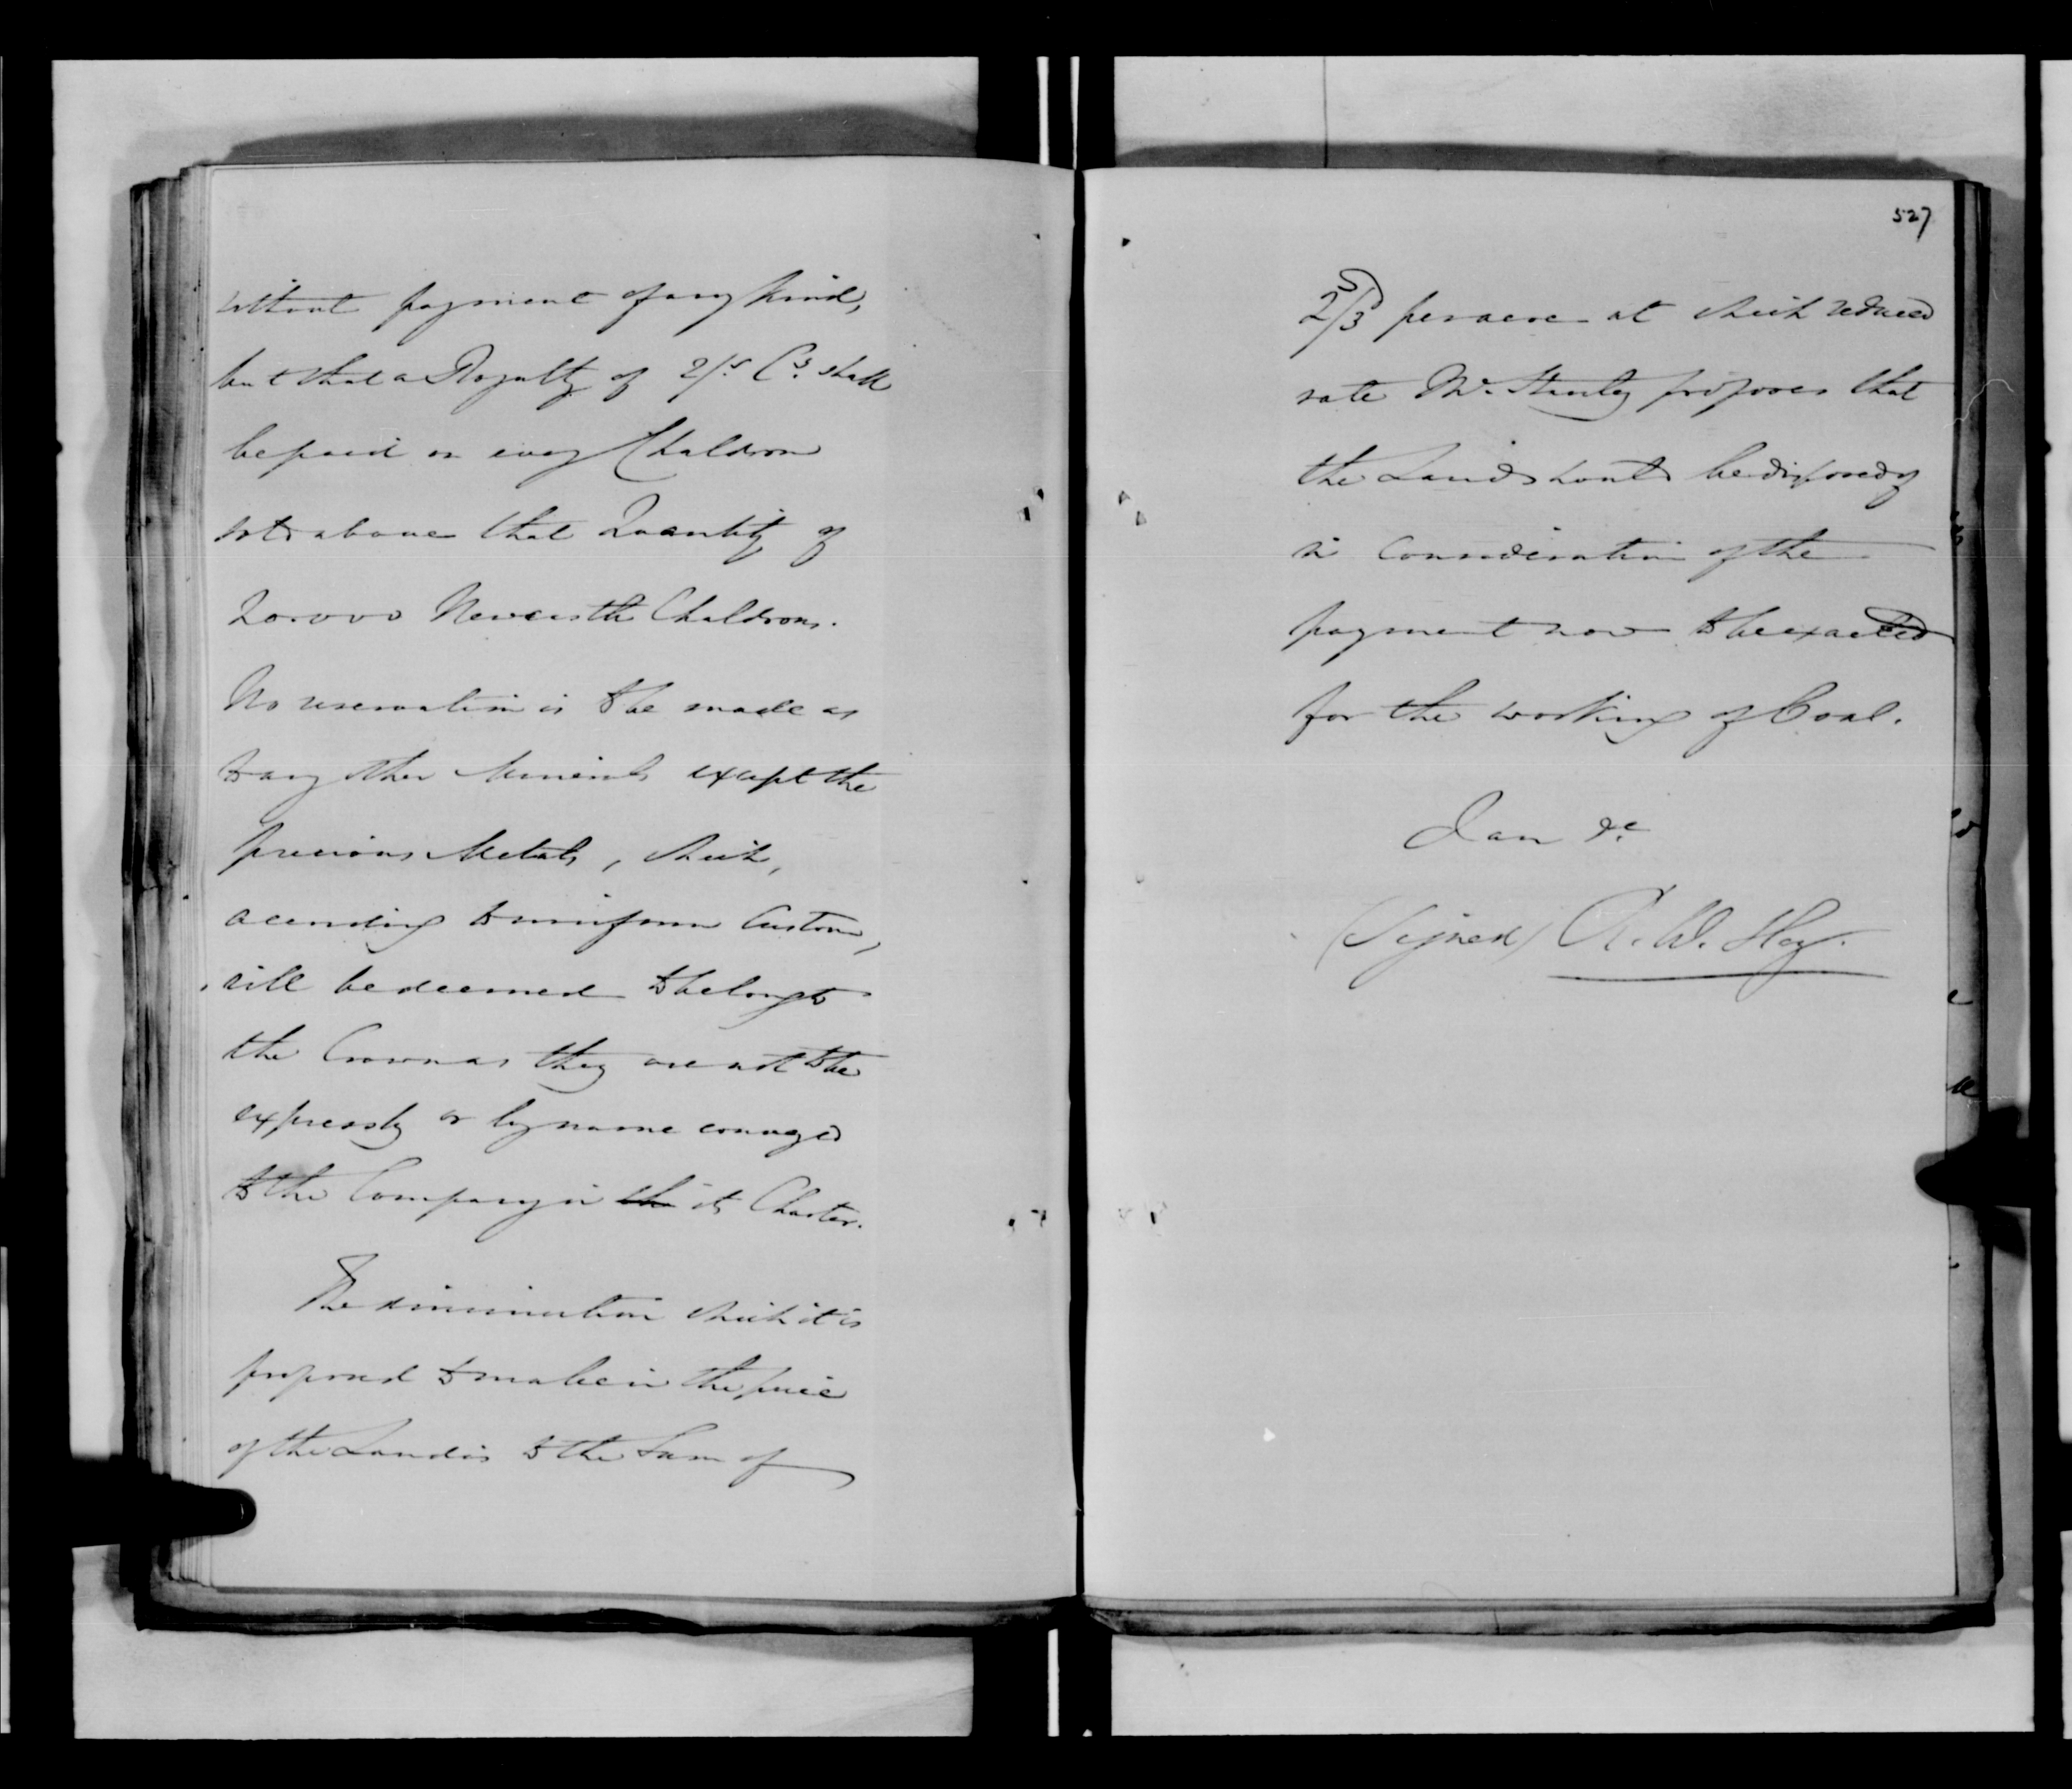 without payment of any kind,
but that a Royalty of 2/s Cy. shall
be paid on every Chaldron
sold above that Quantity of
20.000 Newcastle Chaldrons.
No reservation is to be made as
to any other Minerals except the
precious Metals, which,
according to uniform Custom,
will be deemed to belong to
the Crown as they are not to be
expressly or by name conveyed
to the Company in the its Charter.
The diminution which it is
proposed to make in the price
of the Land is to the Sum of
527
2/3 per acre at which reduced
rate Mr. Stanley proposes that
the Land should be disposed of
in consideration of the
payment now to be exacted
for the working of Coal.
I am &c
(Signed) R. W. Hay.